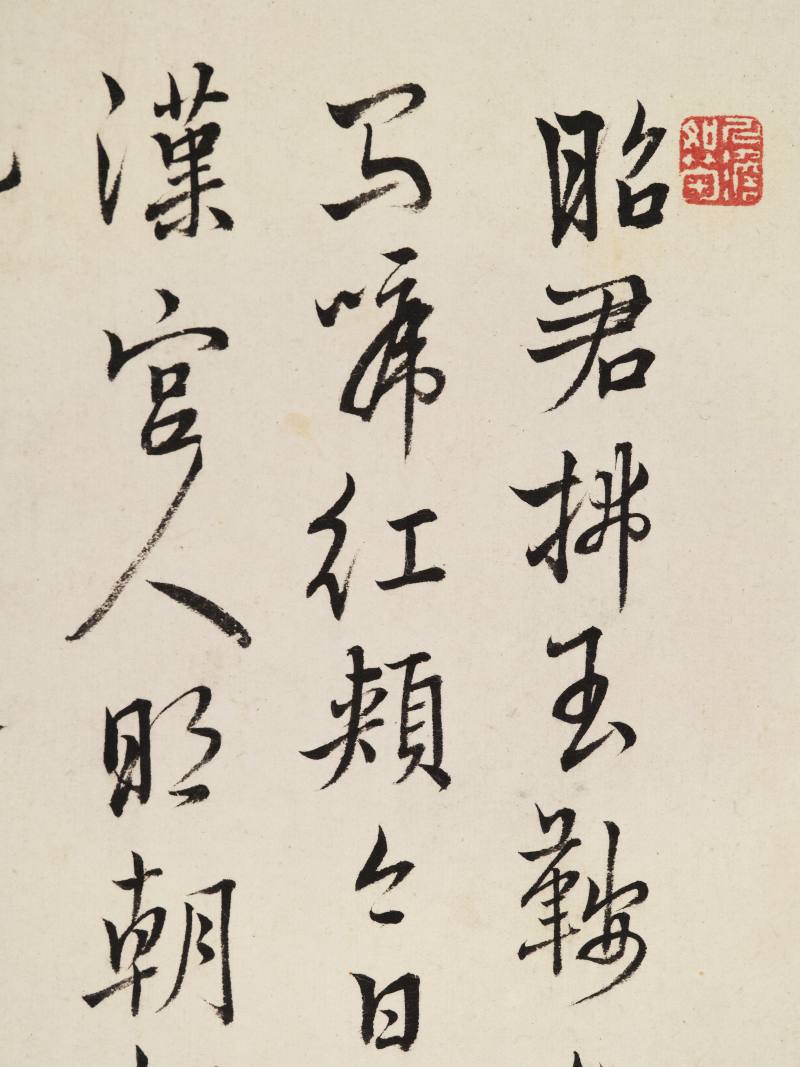 昭君拂玉鞍
馬啼紅頰今日
漢宮人明朝